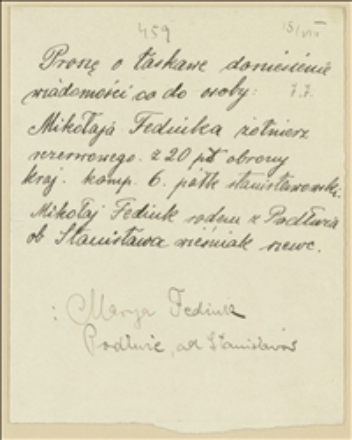 459
15/VIII
Proszę o łaskawe doniesienie
wiadomości co do osoby: 7.7.
Mikołaja Fediuka żołnierz
rezerwowego. z 20 płt obrony
kraj. komp. 6. półk stanisławowski.
Mikołaj Fediuk rodem z Podłuża
ob Stanisława wieśniak szewc.
: Marya Fediuk
Podłuże, ad Stanisławów